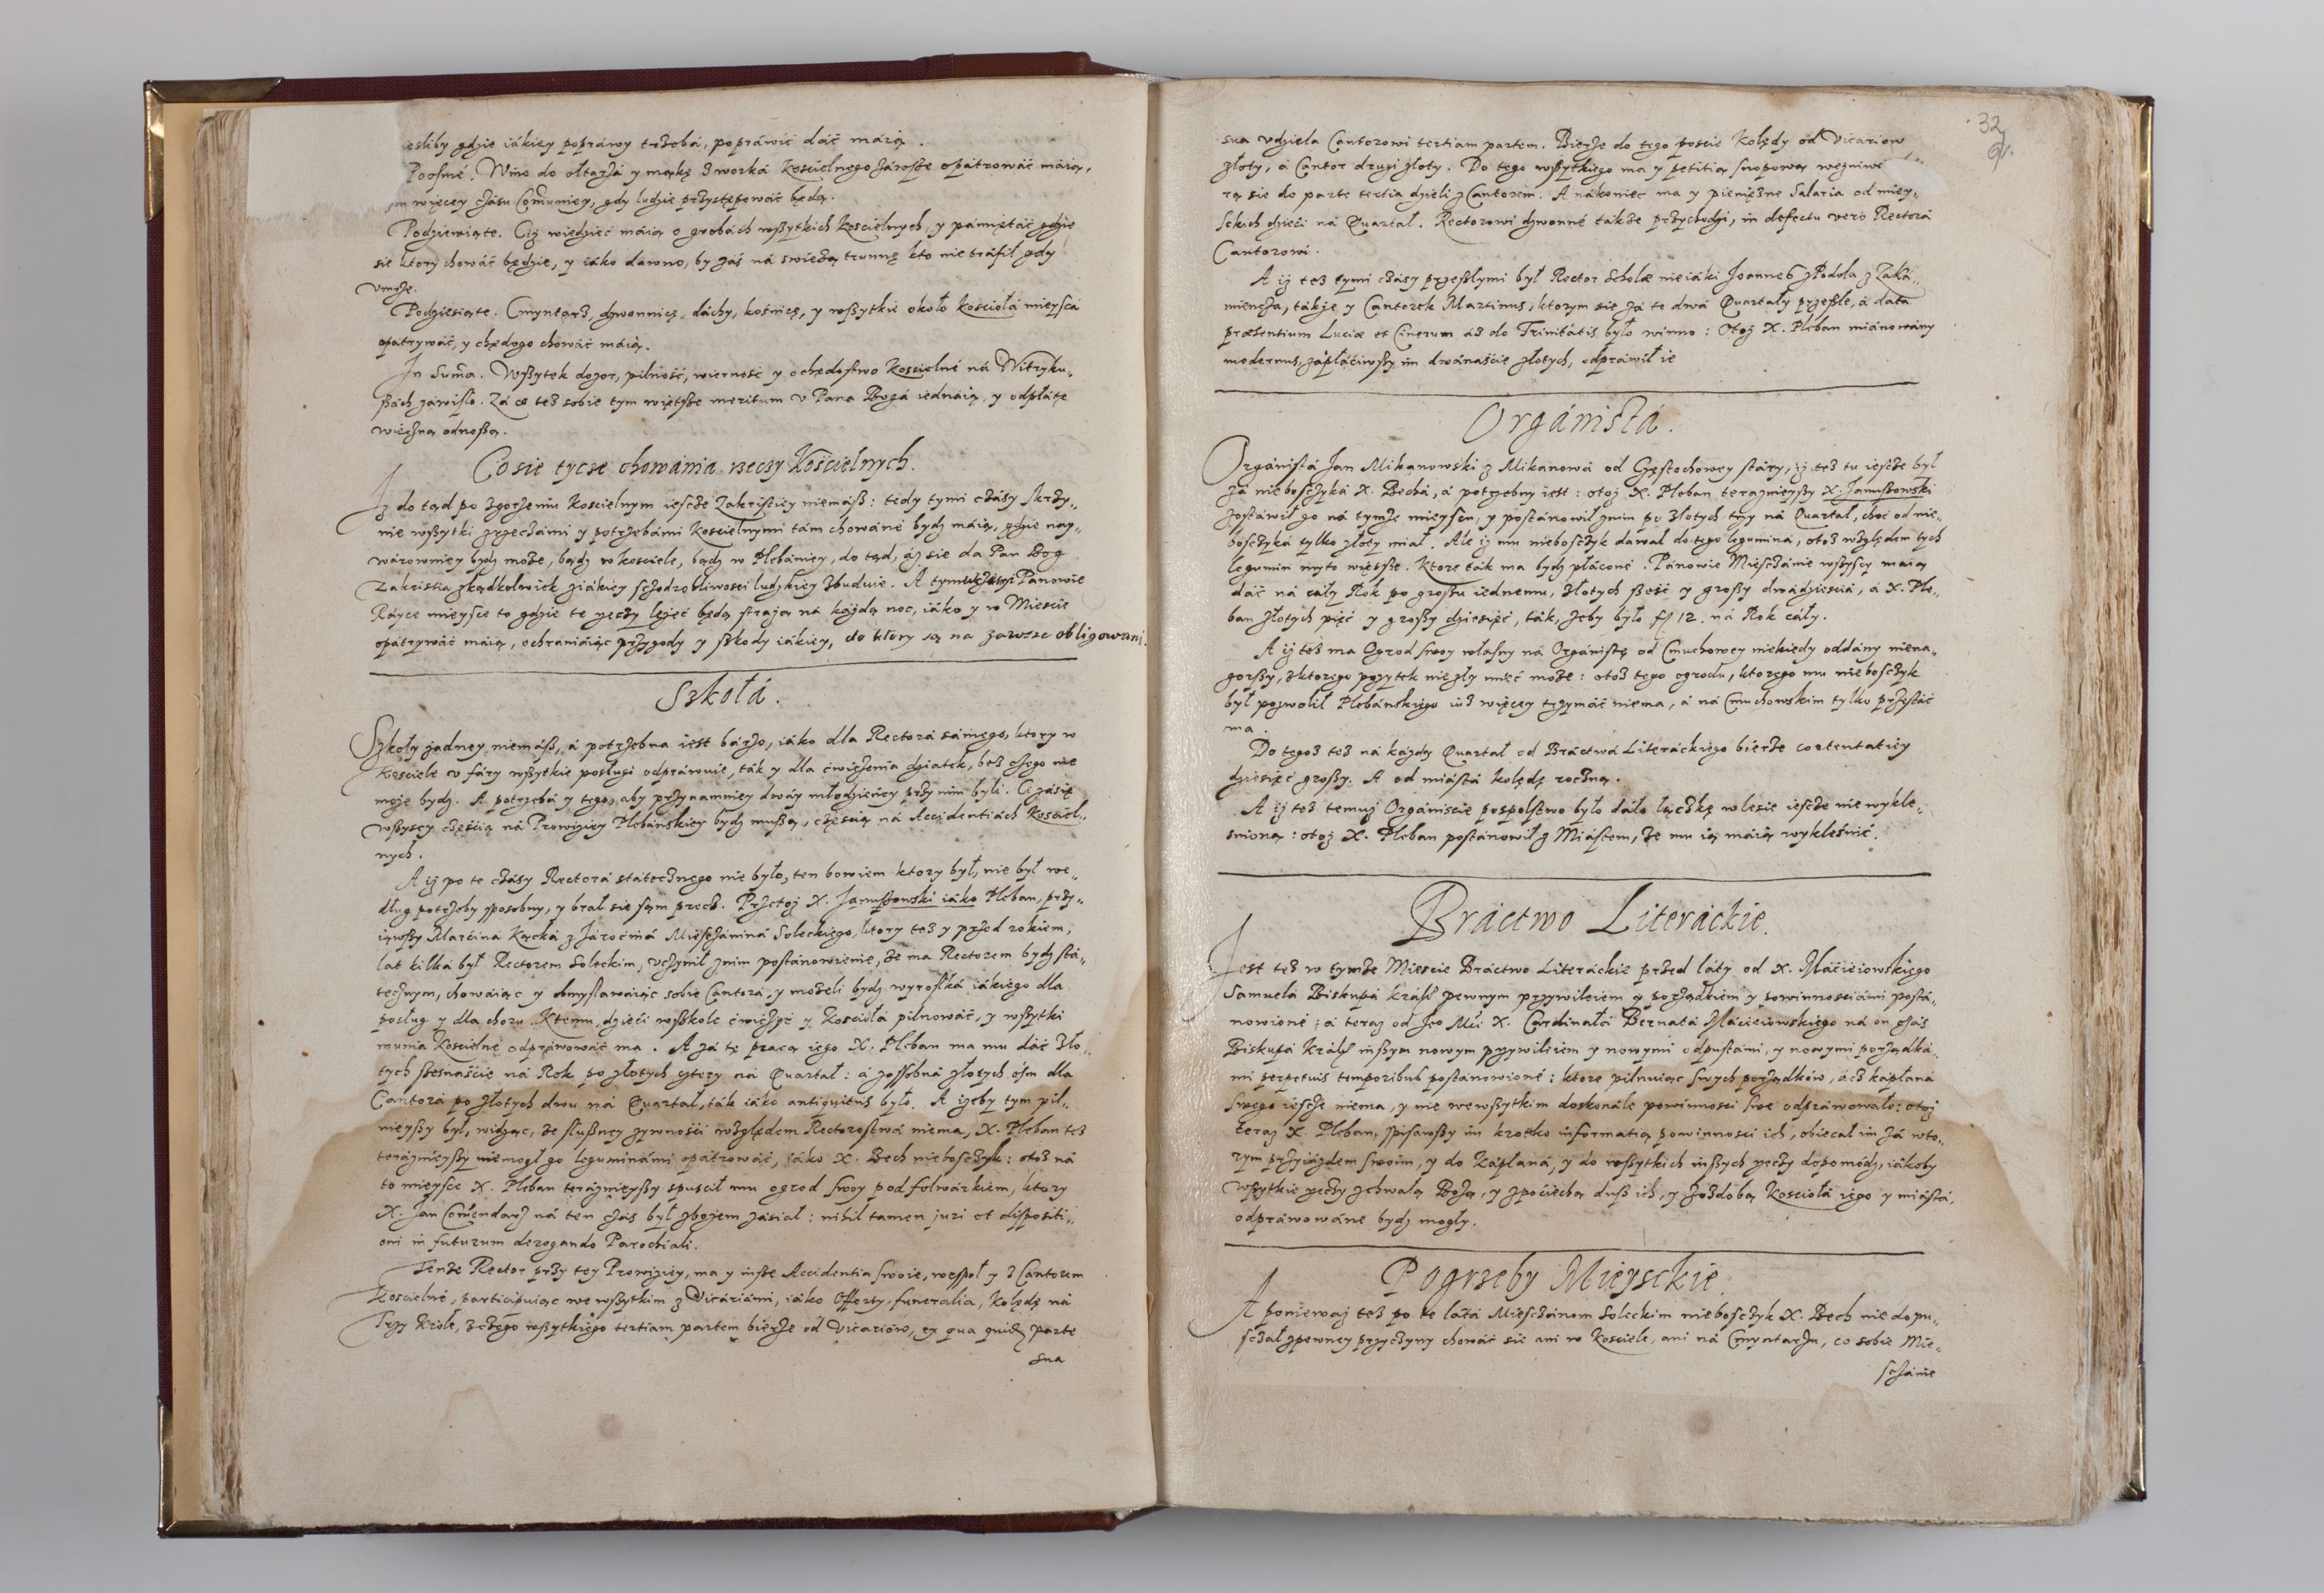 esliby gdzie iákiey popráwy trzebá, popráwić dáć máią.
Poosme. Wino do ołtarzá y mąkę z worká Kościelnego záwsze opátrowáć máią,
in więcey czásu Com̃uniey, gdy ludzie przystępowáć będą.
Podziewiąte. Ciż wiedzieć máią o grobách wszytkich Kościelnych, y pámiętáć gdzie
sie ktory chowáć będzie, y iáko dawno, by záś ná świeżą trunnę kto nie tráfił gdy
vmrze.
Podziesiąte. Cmyntarz, dzwonnicę, dáchy, kośnicę, y wszytkie około kościołá mieyscá
opátrywáć, y chędogo chowáć máią.
In Sum̃a. Wszytek dozor, pilność, wierność y ochędostwo Kościelné ná Witryku„
szách záwisło. Zá co też sobie tym więtsze meritum v Pana Bogá iednáią, y odpłátę
wieczną odnoszą.
Co sie tycze chowánia rzeczy Kościelnych.
Iż do tąd po zgorzeniu Kościelnym iescze Zakristiey niemász: tedy tymi czásy skrzy„
nie wszytki z rzeczámi y potrzebámi Kościelnymi tám chowáné bydź máią, gdzie nay„
wárowniey bydź może, bądź w kościele, bądź w Plebániey, do tąd, áż sie da Pan Bog
Zakristia zkądkolwiek z iákiey sczodrobliwości ludzkiey zbuduie. A tymczásem Panowie
Ráyce mieysce to gdzie te rzeczy leżeć będą strażą ná káżdą noc, iáko y w Mieście
opátrywáć máią, ochrániáiąc przygody y szkody iákiey, do ktory są na zawsze obligowani.
Szkołá.
Szkoły żadney niemász, á potrzebna iest bárzo, iáko dla Rectorá sámego, ktory w
Kościele v fáry wszytkie posługi odpráwuie, ták y dla ćwiczenia dziatek, bez czego nie
może bydź. A potrzebá y tego, aby przynamniey dwáy młodzieńcy przy nim byli. Ci zásię
wszyscy częścią ná Prowizyiey Plebánskiey bydź muszą, częścią ná Accidentiách Kościel„
nych.
A iż po te czásy Rectorá státecznego nie było, ten bowiem ktory był, nie był we„
dług potrzeby sposobny, y brał sie sąm precz. Przetoż X. Januszowski iáko Pleban, przy„
iąwszy Marciná Kącká z Járociná Miesczániná Soleckiego, ktory też y przed rokiem,
lat kilká był Rectorem Soleckim, vczynił z nim postánowienie, że ma Rectorem bydź stá„
tecznym, chowáiąc y obmyslawáiąc sobie Cantorá, y możeli bydź wyrostká iákiego dla
posług y dla choru. Ktemu, dzieći w szkole ćwiczyć y Kościołá pilnowáć, y wszytki
munia Kościelné odpráwowáć ma. A zá tę pracą iego X. Pleban ma mu dáć zło„
tych szesnaście ná Rok po złotych cztery ná Quartał: á zossobná złotych ośm dla
Cantorá po złotych dwu ná Quartał, ták iáko antiquitus było. A iżeby tym pil„
nieyszy był, widząc, że słuszney żywności względem Rectorostwá niema, X. Pleban też
teráznieyszy niemogł go leguminámi opátrowáć, iáko X. Bech nieboszczyk: otoż ná
to mieysce X. Pleban teráznieyszy spuścił mu ogrod swoy pod folwárkiem, ktory
X. Jan Com̃endarz ná ten czás był zbożem zásiał: nihil tamen juri et dispositi„
oni in futurum derogando Parochiali.
Tenże Rector przy tey Prowizyiey, ma y insze Accidentia swoie, wespoł y z Cantorem
Kościelné, participuiąc we wszytkim z Vicáriámi, iáko Offerty, funeralia, Kolędę ná
Trzy Krole, z czego wszytkiego tertiam partem bierze od Vicariów, ex qua quidem parte
sua
32
sua vdziela Cantorowi tertiam partem. Bierze do tego poście Kolędy od Vicariow
złoty, á Cantor drugi złoty. Do tego wszytkiego ma y petitią snopową we żniwe
rą sie do parte tertia dzieli z Cantorem. A nákoniec ma y pieniężne Salaria od miey„
sckich dzieći ná Quartał. Rectorowi dzwonné tákże przychodzi, in defectu vero Rectorá
Cantorowi.
A iż też tymi czásy przeszłymi był Rector Scholæ nieiáki Joannes z Podola z Káḿ„
mieńcza, tákże y Cantorek Martinus, ktorym sie zá te dwá Quartały przeszłe, á data
præsentium Luciæ et Cinerum áż do Trinitátis było winno: Otoż X. Pleban miánowány
modernus, zápłáciwszy im dwánaście złotych, odpráwił ie
Orgánistá.
Orgánistá Jan Mikanowski z Mikanowá od Częstochowey stáry, iż też tu iescze był
zá nieboszczyká X. Bechá, á potrzebny iest: otoż X. Pleban teraznieyszy X. Januszowski
zostáwił go ná tymże mieyscu, y postánowił z nim po złotych trzy ná Quartał, choć od nie„
boszczyká tylko złoty miał. Ale iż mu nieboszczyk dawał do tego leguminá, otoż względem tych
legumin myto więtsze. Ktore ták ma bydź płáconé. Pánowie Miesczánie wszyscy máią
dáć ná cáły Rok po groszu iednemu, złotych sześć y groszy dwádzieściá, á X. Ple„
ban złotych pięć y groszy dziesięć, ták, żeby było fl 12. ná Rok cáły.
A iż też ma Ogrod swoy własny ná Orgánistę od Cmuchowey niekiedy oddány niena„
gorszy, z ktorego pożytek niezły mieć może: otoż tego ogrodu, ktorego mu nieboszczyk
był pozwolił Plebánskiego iuż więcey trzymáć niema, á ná Cmuchowskim tylko przestáć
ma.
Do tegoż też ná káżdy Quartał od Bráctwá Literáckiego bierze contentatiey
dziesięć groszy. A od miástá kolędę roczną.
A iż też temuż Orgániście pospolstwo było dáło łączkę w lesie iescze nie wykle„
snioną: otoż X. Pleban postánowił z Miástem, że mu ią máią wykleśnić.
Bráctwo Literáckie.
Jest też w tymże Mieście Bráctwo Literáckie przed láty od X. Máćieiowskiego
Samuelá Biskupá Krák: pewnym przywileiem y porządkiem y powinnościámi postá„
nowioné; á teraz od Jeo Mći X. Cardinałá Bernatá Máćieiowskiego ná on czás
Biskupá Krák: inszym nowym przywileiem y nowymi odpustámi, y nowymi porządká„
mi perpetuis temporibus postánowioné: ktore pilnuiąc swych porządków, ácz kápłaná
swego iescze niema, y nie we wszytkim doskonále powinności swe odpráwowáło: otoż
teraz X. Pleban, spisawszy im krotko informatią powinności ich, obiecał im zá wto„
rym przyiázdem swoim, y do Kápłaná, y do wszytkich inszych rzeczy dopomódz, iákoby
wszytkie rzeczy z chwałą Bożą, y z pociechą dusz ich, y z ozdobą Kościołá iego y miástá,
odpráwowáne bydź mogły.
Pogrzeby Mieysckie.
A ponieważ też po te látá Miesczánom Soleckim nieboszczyk X. Bech nie dopu„
sczał z pewney przyczyny chowáć sie ani w Kościele, ani ná Cmyntarzu, co sobie Mie„
sczánie